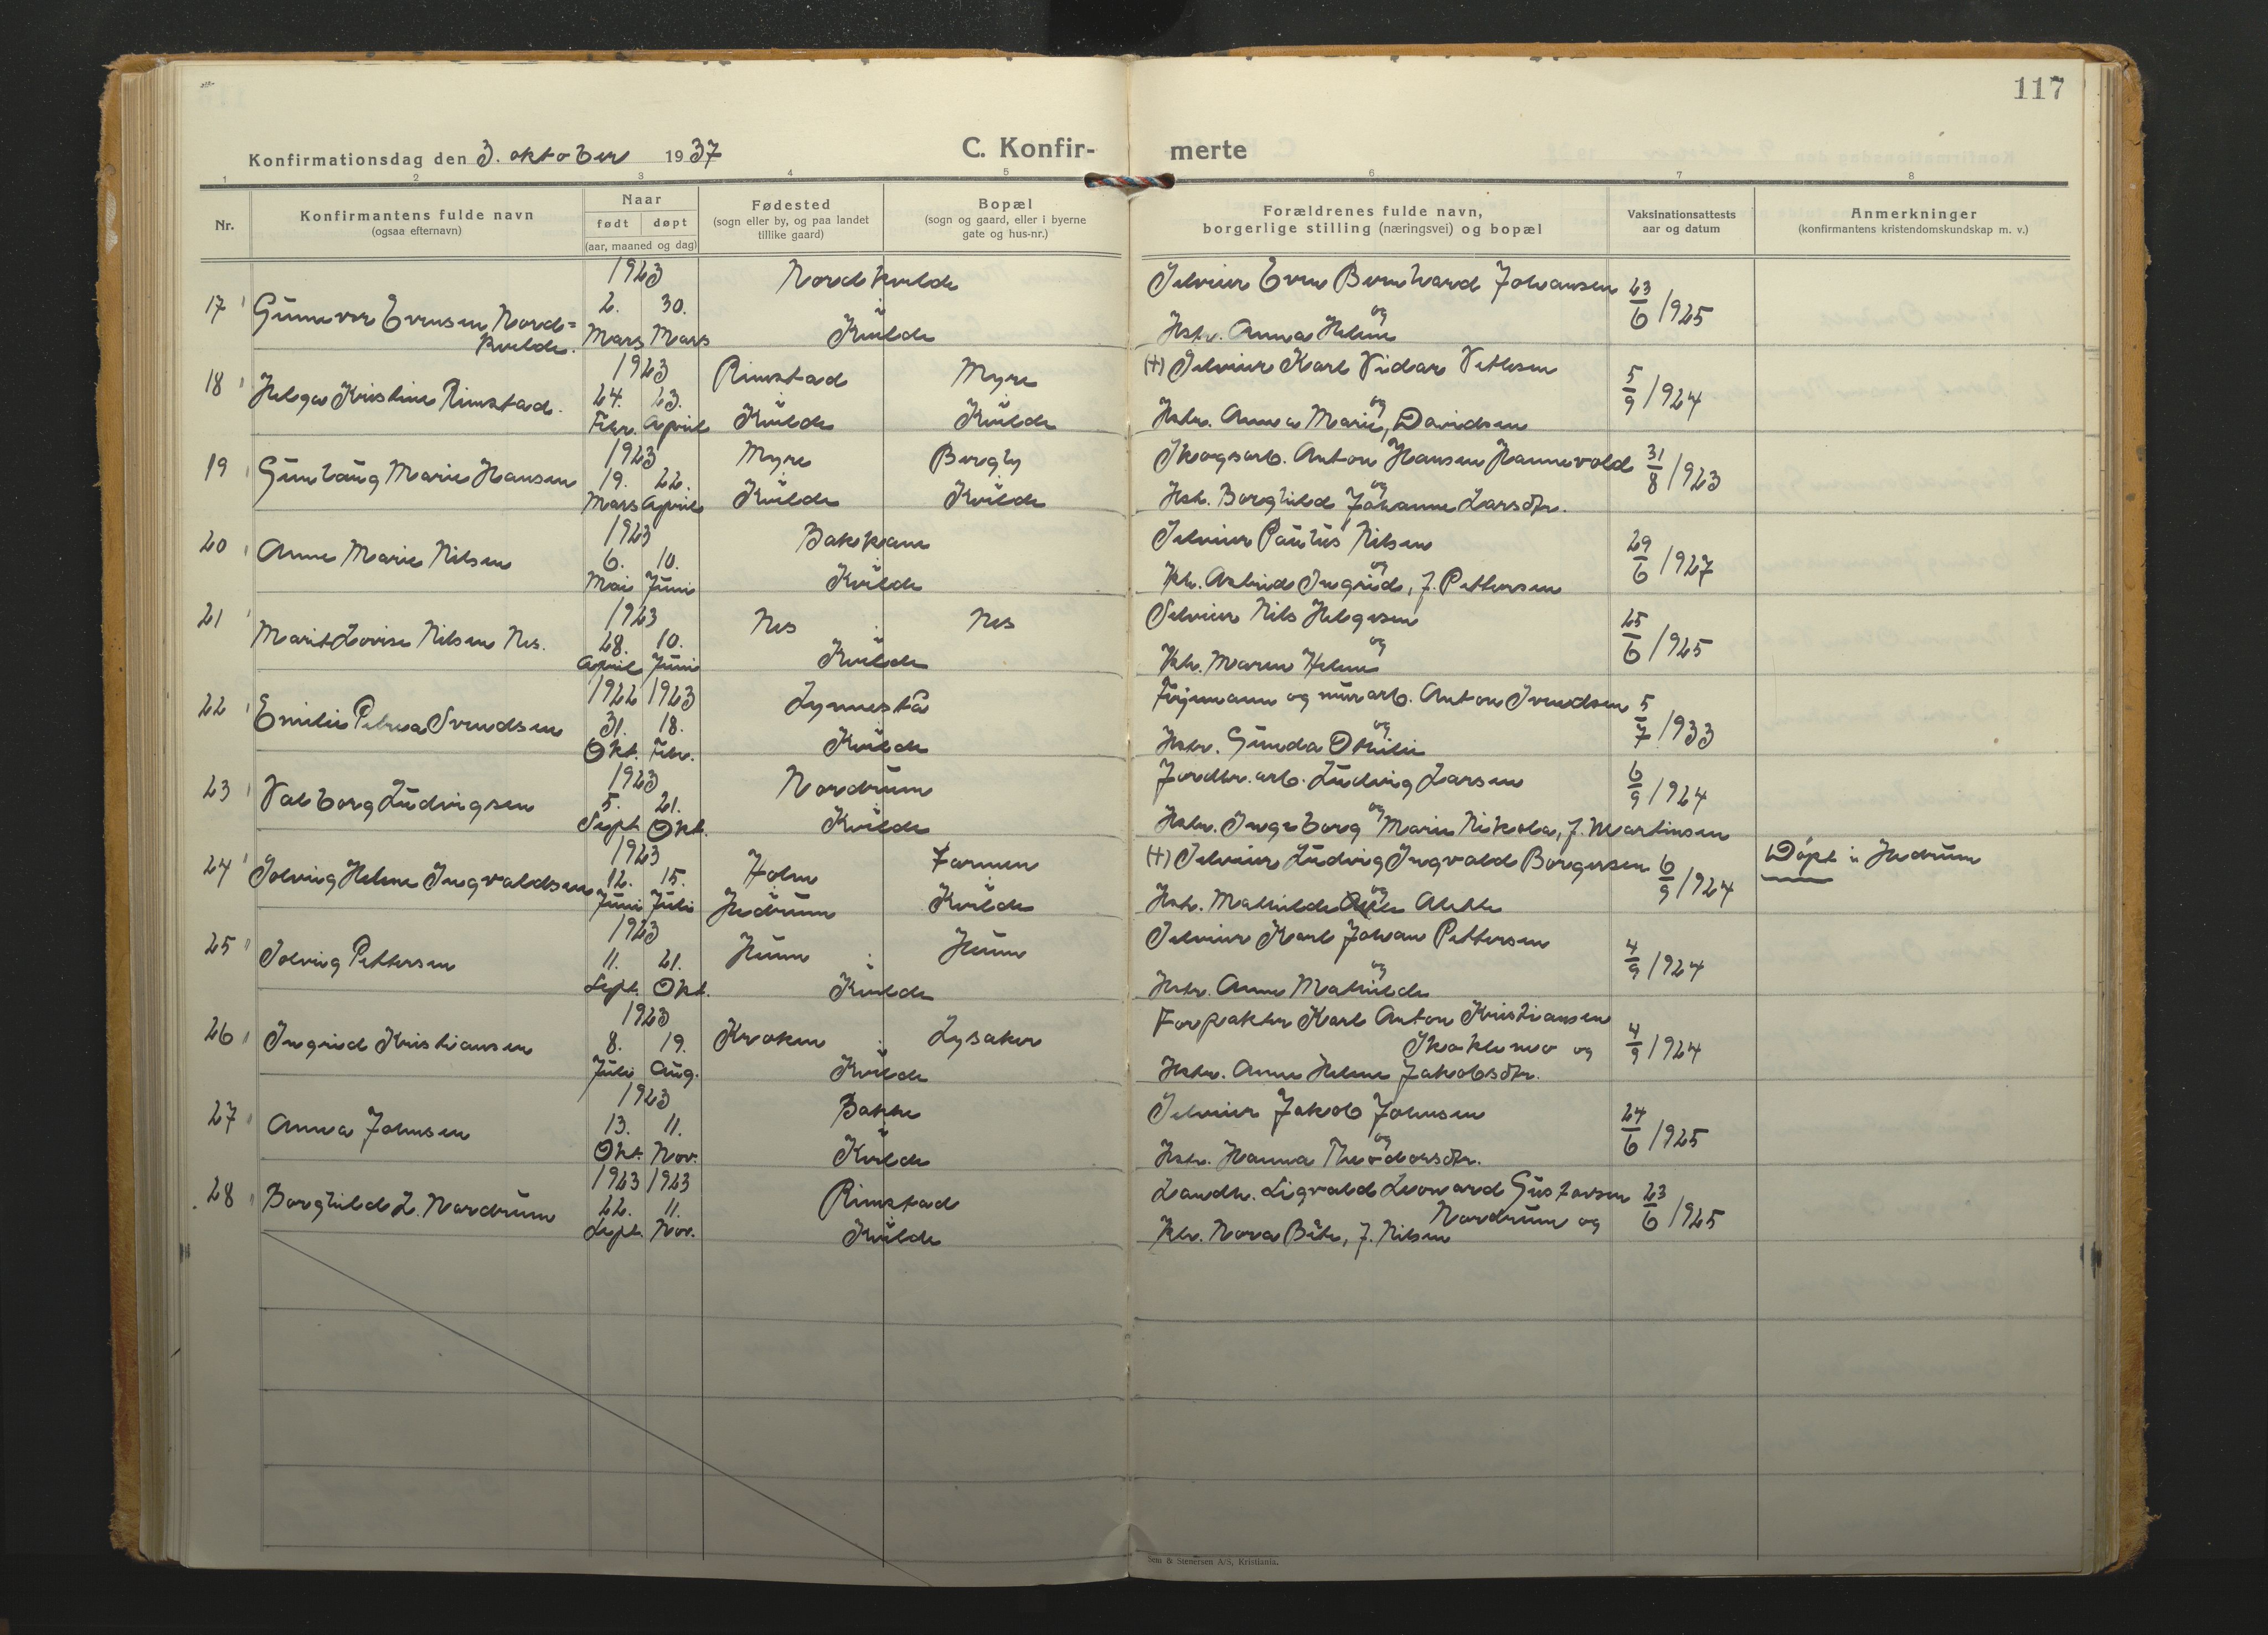 117
Konfirmationsdag den 3. oktober 1937
C. Konfir- merte
1 2 3 4 5 6 7 8
Nr.
Konfirmantens fulde navn
(ogsaa efternavn)
Naar
født døpt
(aar, maaned og dag)
Fødested
(sogn eller by, og paa landet
tillike gaard)
Bopæl
(sogn og gaard, eller i byerne
gate og hus-nr.)
Forældrenes fulde navn,
borgerlige stilling (næringsvei) og bopæl
Vaksinationsattests
aar og datum
Anmerkninger
(konfirmantens kristendomskundskap m. v.)
1923 Nordkvelde Selveier Even Bernhard Johansen 23/6 1925
17 Gunnvor Evensen Nord= 2. 30. i og
kvelde. Mars Mars Kvelde Hstr. Anna Helene
1923 Rimstad Myre (+) Selveier Karl Vidar Vetlesen 5/9 1924
18 Helga Kristine Rimstad. 24. 23. i i og
Febr. April Kvelde Kvelde Hstr. Anna Marie, Davidsen
1923 Myre Bergly Skogsarb. Anton Hansen Hannevold 31/8 1923
19 Gunlaug Marie Hansen 19. 22. i i og
Mars April Kvelde Kvelde Hstr. Borghild Johanne Larsdtr.
1923 Bakskann Selveier Paulus Nilsen 29/6 1927
20 Anne Marie Nilsen 6. 10. i og
Mai Juni Kvelde Hstr. Astrid Ingrid, f. Pettersen
1923 Nes Nes Selveier Nils Helgesen 25/6 1925
21 Marit Lovise Nilsen Nes. 28. 10. i og
April Juni Kvelde Hstr. Maren Helene
1922 1923 Lynnestå Fyrmann og murarb. Anton Svendsen 5/7 1933
22 Emilie Petrea Svendsen 31. 18. i og
Okt. Febr. Kvelde Hstr. Gunda Otilie
1923 Nordrum Jordbr.arb. Ludvig Larsen 6/9 1924
23 Valborg Ludvigsen 5. 21. i og
Sept. Okt. Kvelde Hstr. Ingeborg Marie Nikola, f. Martinsen
1923 Holm Farmen (+) Selveier Ludvig Ingvald Borgersen 6/9 1924 Døpt i Hedrum
24 Solveig Helene Ingvaldsen 12. 15. i i og
Juni Juli Hedrum Kvelde Hstr. Mathilde Alette
1923 Huun Huun Selveier Karl Johan Pettersen 4/9 1924
25 Solveig Pettersen 11. 21. i og
Sept. Okt. Kvelde Hstr. Anne Mathilde
1923 Kroken Lysaker Forpakter Karl Anton Kristiansen 4/9 1924
26 Ingrid Kristiansen 8. 19. i og
Juli Aug. Kvelde Hstr. Anne Helene Jakobsdtr.
1923 Bakke Selveier Jakob Johnsen 24/6 1925
27 Anna Johnsen 13. 11. i og
Okt. Nov. Kvelde Hstr. Hanna Theodorsdtr.
1923 1923 Rimstad Landh. Sigvald Leonard Gustavsen 23/6 1925
28 Borghild L. Nordrum 22. 11. Nordrum og
Sept. Nov. Kvelde Hstr. Nora Bets, f. Nilsen
Sem & Stenersen A/S, Kristiania.